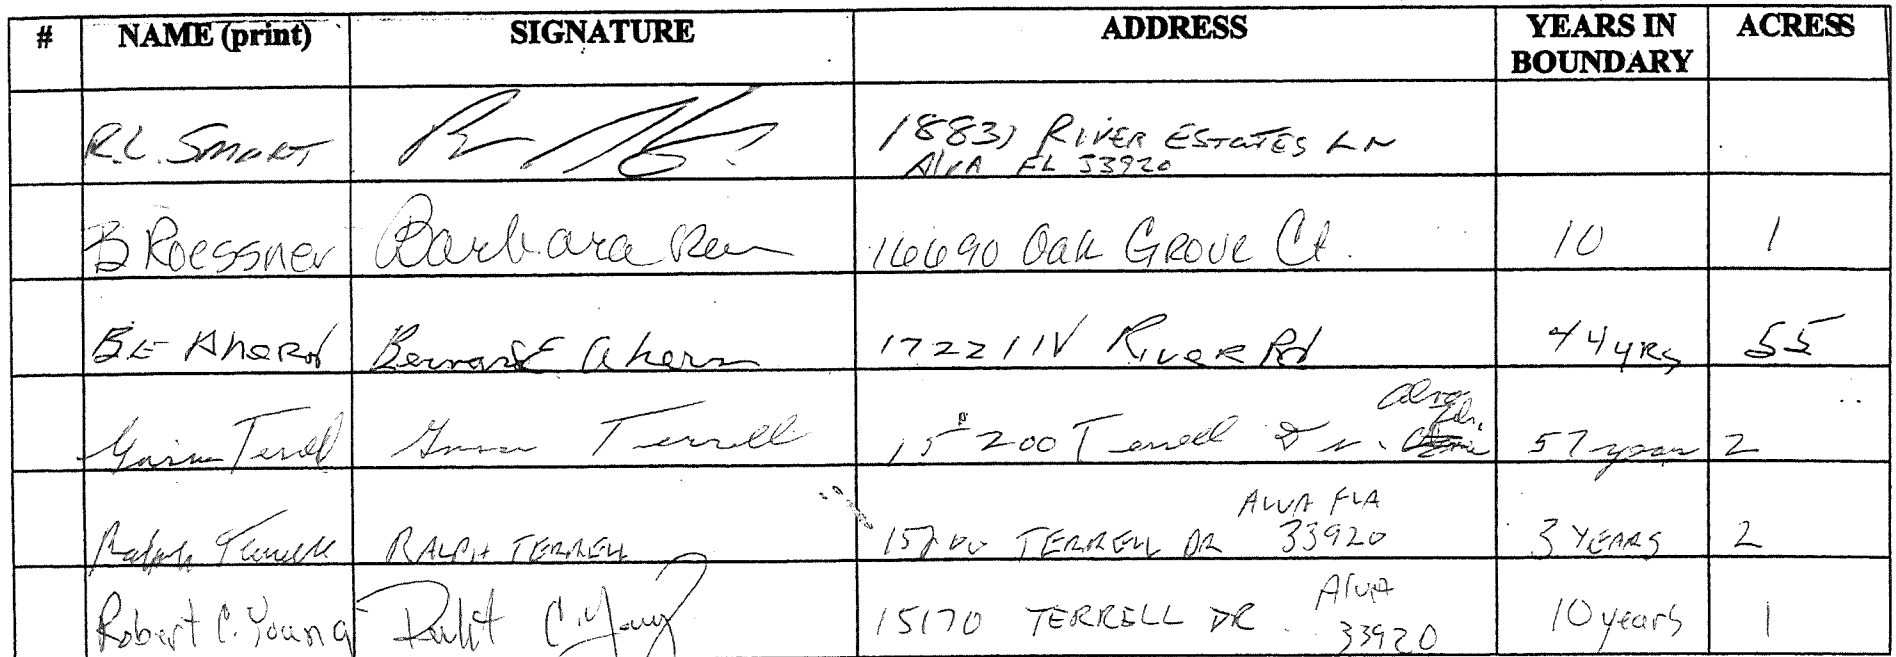 # NAME (print) SIGNATURE ADDRESS YEARS IN BOUNDARY ACRESS
R.L. SMART 18831 RIVER ESTATES LN
ALVA FL 33920
B Roessner Barbara 16690 Oak GROVE Ct. 10 1
B.E Ahern Bernard E Ahern 17221 N RIVER Rd 44 yrs 55
Alva
Terrell Terrell 15200 Terrell Dr. 57 years 2
ALVA FLA
Ralph Terrell RALPH TERRELL 15200 TERRELL DR 33920 3 YEARS 2
Alva
Robert C. Young Robert C. Young 15170 TERRELL DR 33920 10 years 1